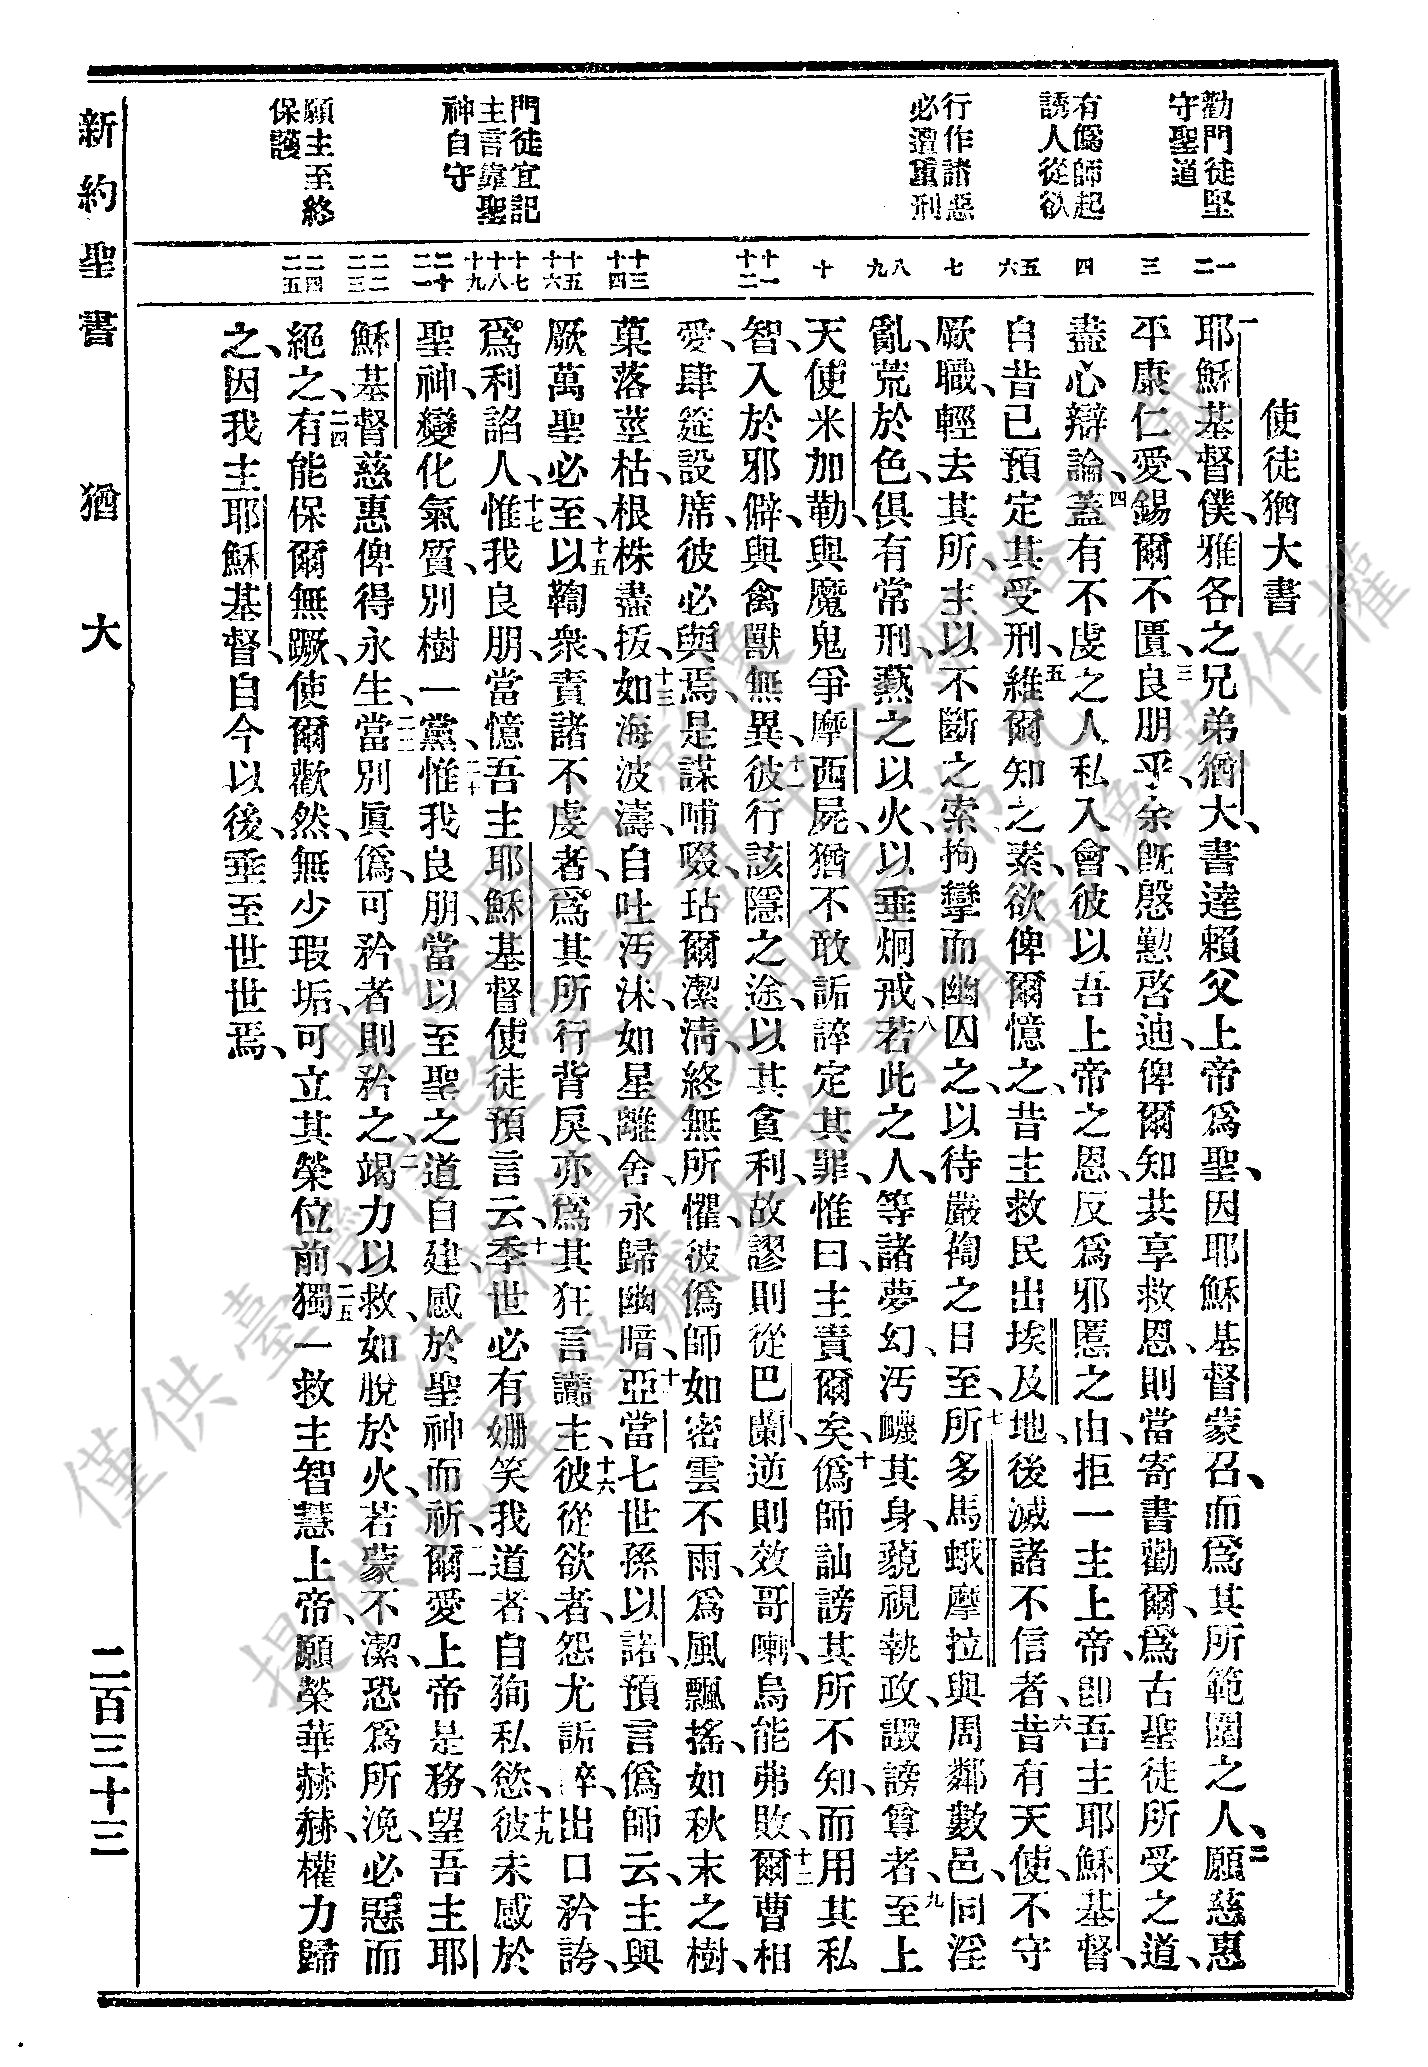 勸門徒堅
守聖道
有僞師起
誘人從欲
行作諸惡
必遭重刑
門徒宜記
主言靠聖
神自守
願主至終
保護
一
二
三
四
五
六
七
八
九
十
十一
十二
十三
十四
十五
十六
十七
十八
十九
二十
二一
二二
二三
二四
二五
使徒猶大書
一耶穌基督僕、雅各之兄弟猶大、書達賴父上帝爲聖、因耶穌基督蒙召、而爲其所範圍之人、二願慈惠
平康仁愛、錫爾不匱、三良朋乎、余旣慇懃啓迪、俾爾知共享救恩、則當寄書勸爾、爲古聖徒所受之道、
盡心辯論、四蓋有不虔之人、私入會、彼以吾上帝之恩、反爲邪慝之由、拒一主上帝、卽吾主耶穌基督、
自昔已預定其受刑、五維爾知之素、欲俾爾憶之、昔主救民出埃及地、後滅諸不信者、六昔有天使、不守
厥職、輕去其所、主以不斷之索、拘攣而幽囚之、以待嚴鞫之日至、七所多馬蛾摩拉、與周鄰數邑、同淫
亂、荒於色、俱有常刑、爇之以火、以垂炯戒、八若此之人、等諸夢幻、汚衊其身、藐視執政、譭謗尊者、九至上
天使米加勒、與魔鬼爭摩西屍、猶不敢詬誶定其罪、惟曰、主責爾矣、十僞師訕謗其所不知、而用其私
智、入於邪僻、與禽獸無異、十一彼行該隱之途、以其貪利、故謬則從巴蘭、逆則效哥喇、烏能弗敗、十二爾曹相
愛、肆筵設席、彼必與焉、是謀哺啜、玷爾潔淸、終無所懼、彼僞師如密雲不雨、爲風飄搖、如秋末之樹、
菓落莖枯、根株盡拔、十三如海波濤、自吐汚沬、如星離舍、永歸幽暗、十四亞當七世孫以諾、預言僞師云、主與
厥萬聖必至、十五以鞫衆、責諸不虔者、爲其所行背戾、亦爲其狂言讟主、十六彼從欲者、怨尤詬誶、出口矜誇、
爲利諂人、十七惟我良朋、當憶吾主耶穌基督使徒預言云、十八季世必有姍笑我道者、自狥私慾、十九彼未感於
聖神、變化氣質、別樹一黨、二十惟我良朋、當以至聖之道自建、感於聖神而祈、二一爾愛上帝是務、望吾主耶
穌基督慈惠、俾得永生、二二當別眞僞、可矜者則矜之、二三竭力以救、如脫於火、若蒙不潔、恐爲所浼、必惡而
絕之、二四有能保爾無蹶、使爾歡然、無少瑕垢、可立其榮位前、二五獨一救主智慧上帝、願榮華赫赫、權力歸
之、因我主耶穌基督、自今以後、垂至世世焉、
新約聖書
猶大
二百三十三
僅供臺灣
提供此聖
著作權